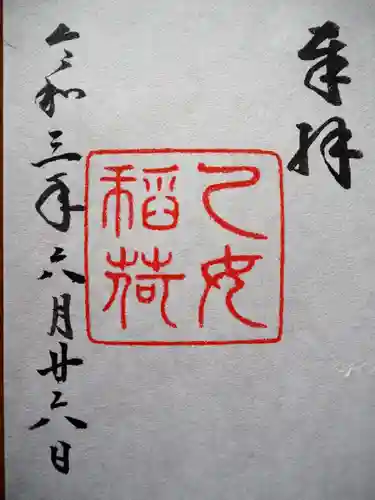 奉拝
乙女
稲荷
令和三年六月廿六日